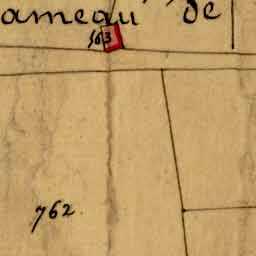 ameau de
563
762.